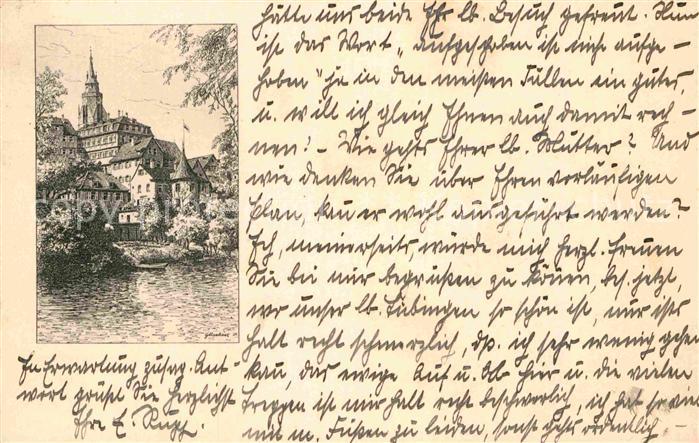 hätte uns beide Ihr lb. Besuch gefreut. Nun
ist das Wort „aufgeschoben ist nicht aufge-
hoben" ja in den meisten Fällen ein gutes,
u. will ich gleich Ihnen auch damit rech-
nen! – Wie gehts Ihrer lb. Mutter? Und
wie denken Sie über Ihren vorläufigen
Plan, kan er wohl ausgeführt werden?
Ich, meinerseits, würde mich herzl. freuen
Sie bei mir begrüßen zu könen, bes. jetzt,
wo unser lb. Tübingen so schön ist, nur ists
halt recht schmerzlich, dß. ich sehr wenig gehen
kan, das ewige Auf u. Ab hier u. die vielen
Treppen ist mir halt recht beschwerlich, ich hab so viel
mit m. Füßen zu leiden, sonst gehts ordentlich. –
In Erwartung zusag. Ant-
wort grüßt Sie herzlichst
Ihre E.